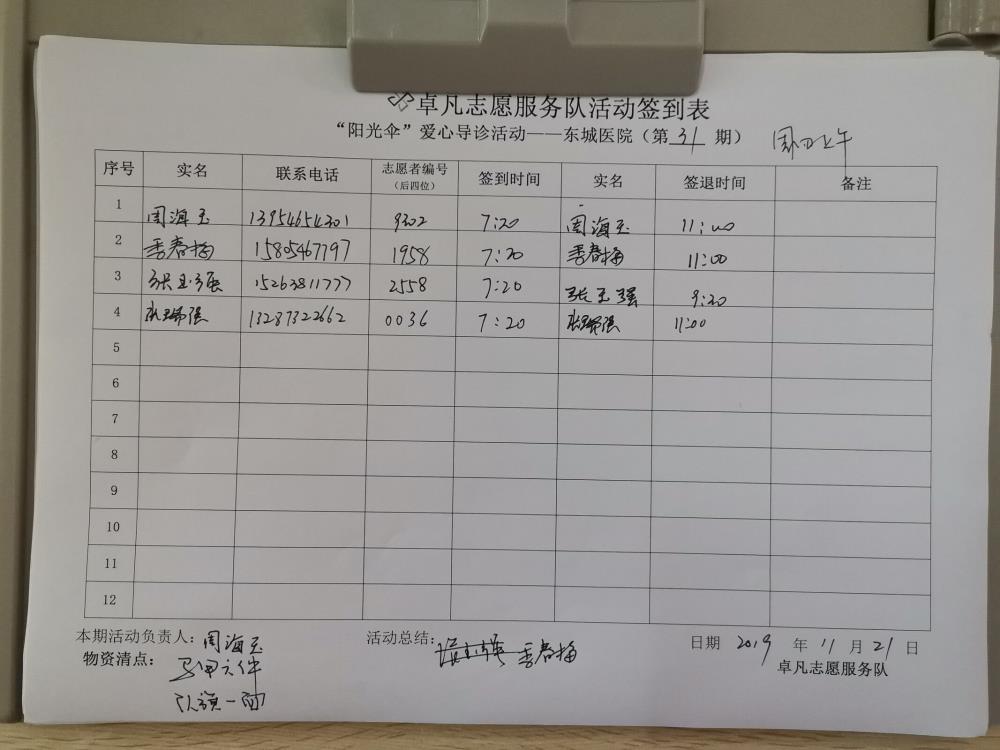 卓凡志愿服务队活动签到表
“阳光伞”爱心导诊活动——东城医院（第 31 期） 周四上午
序号 实名 联系电话 志愿者编号（后四位） 签到时间 实名 签退时间 备注
1 周海玉 13954654301 9202 7:20 周海玉 11:00
2 季春梅 15805467797 1958 7:20 季春梅 11:00
3 张玉强 15263811777 2558 7:20 张玉强 9:20
4 13287322662 0036 7:20 11:00
5
6
7
8
9
10
11
12
本期活动负责人：周海玉 活动总结： 季春梅 日期 2019 年 11 月 21 日
物资清点：马甲六件 卓凡志愿服务队
队旗一面